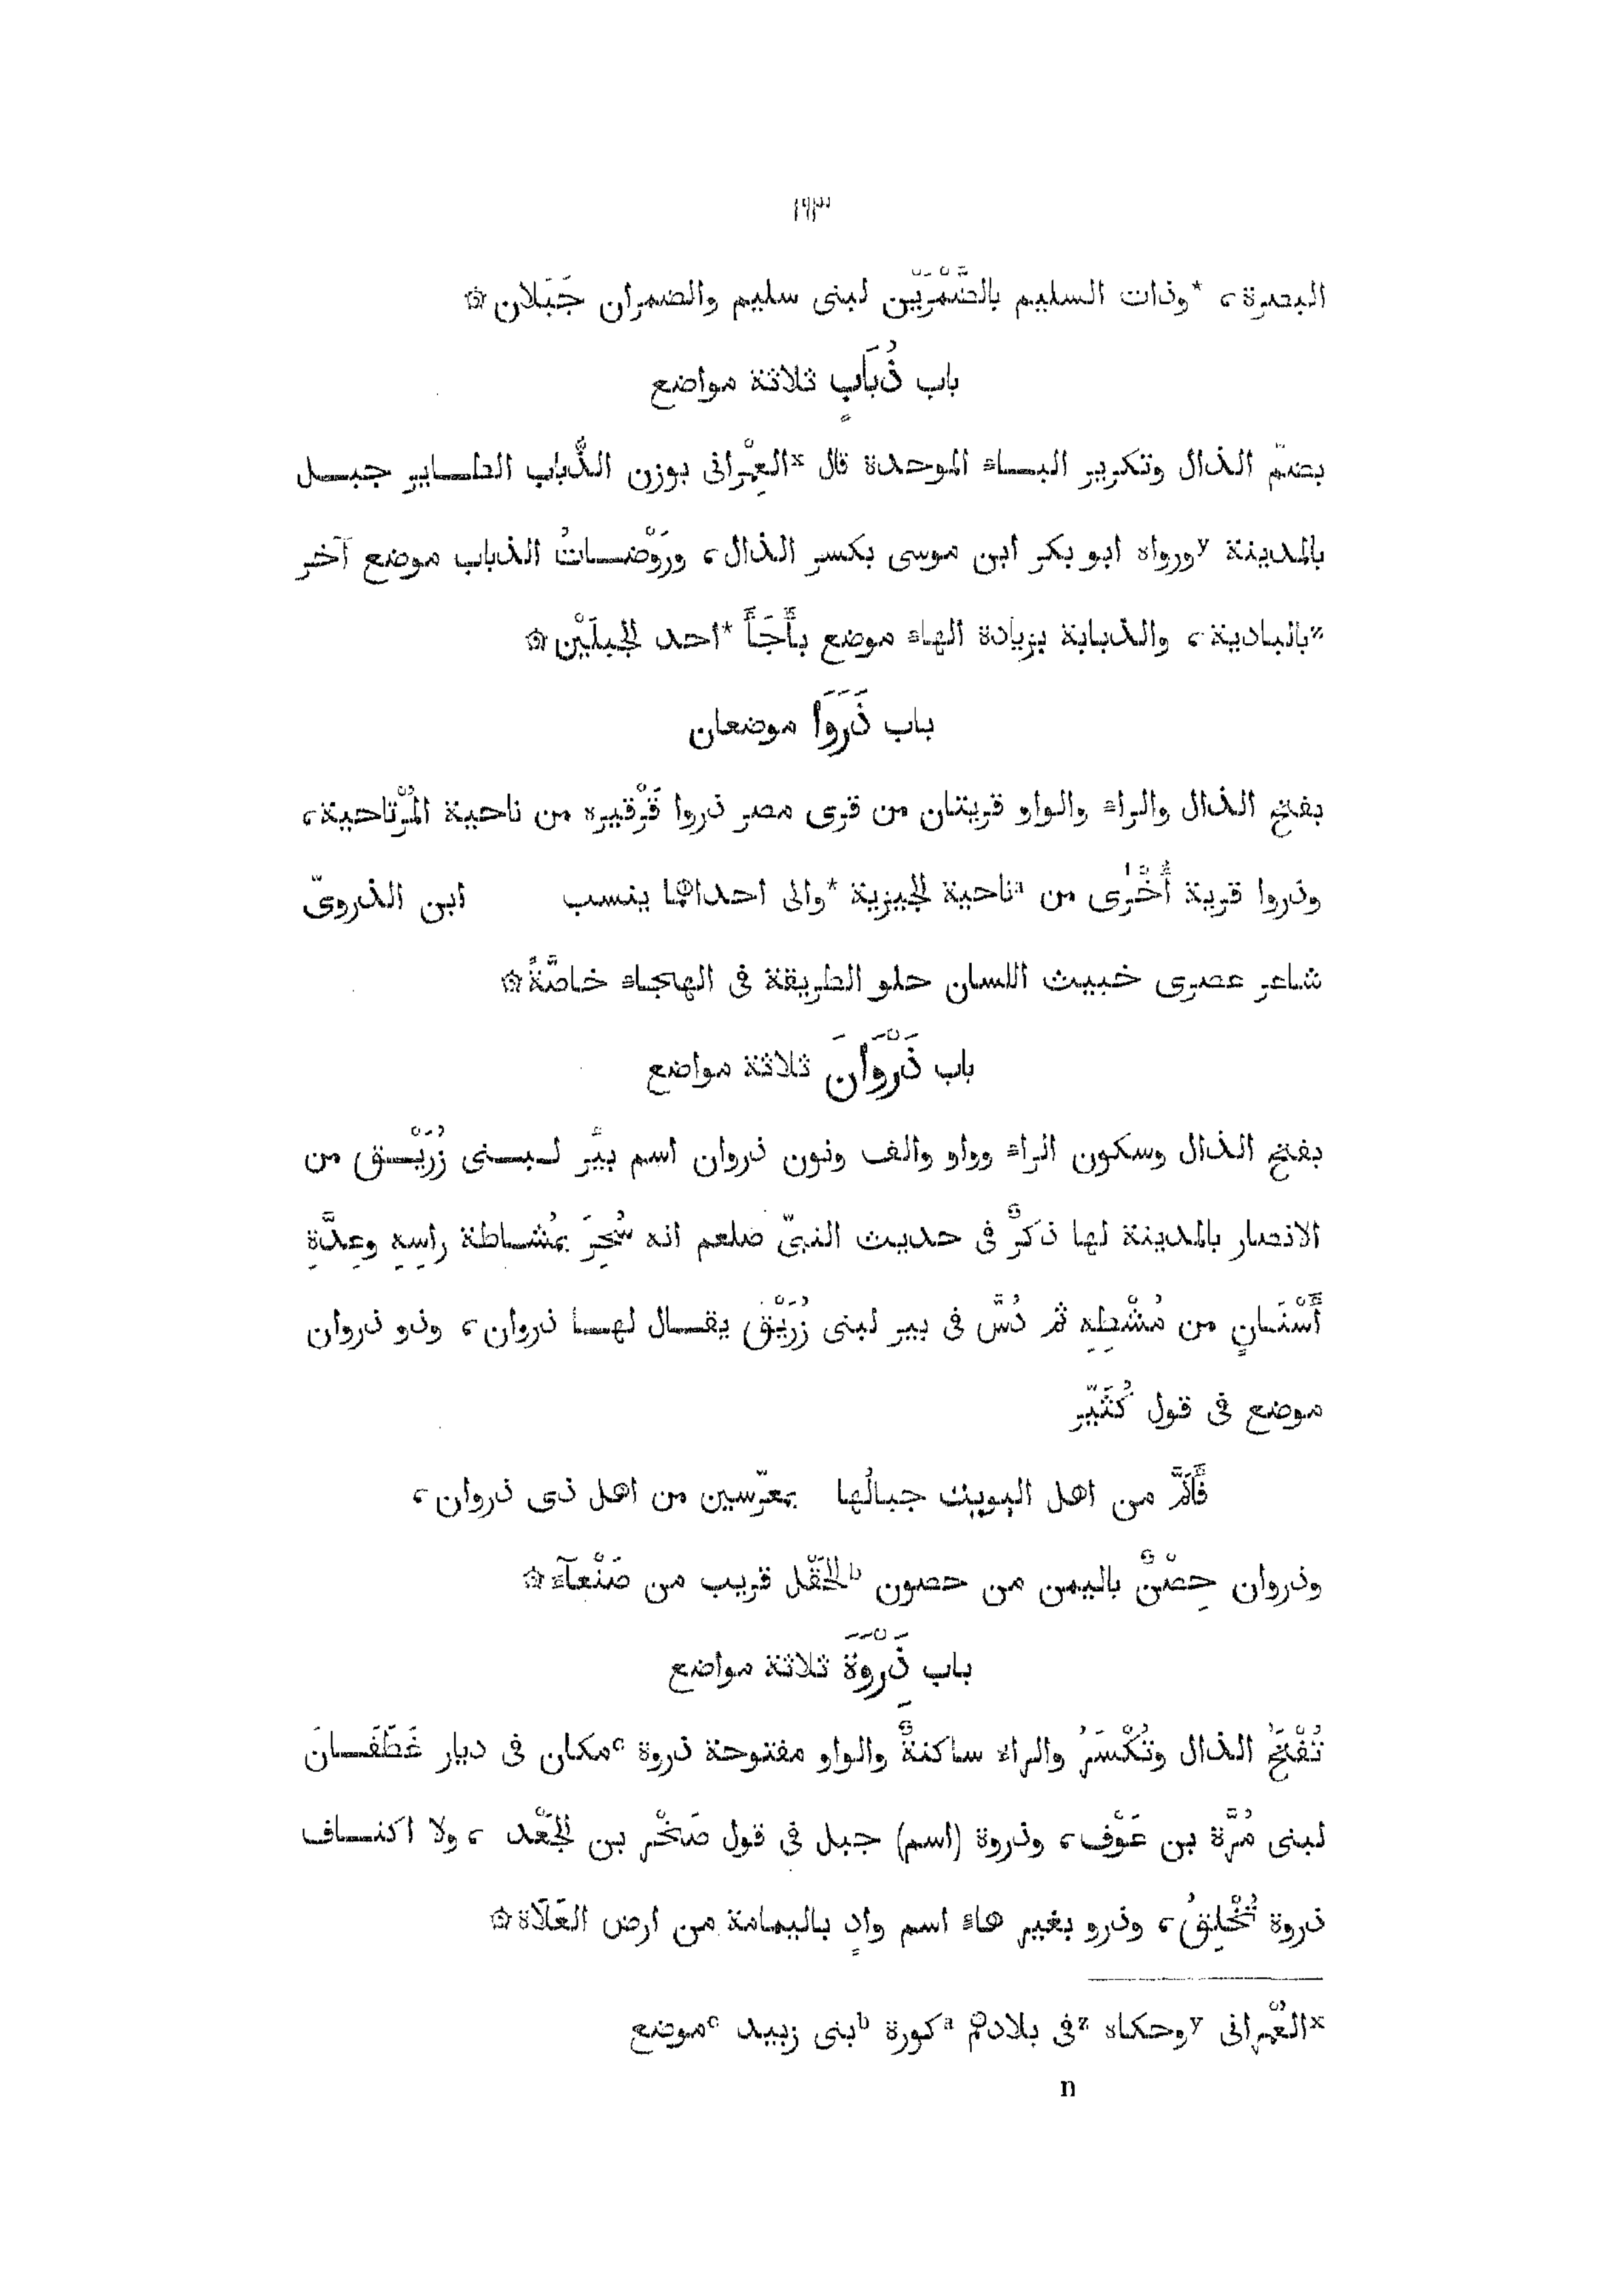 ١٩٣
البصرة، *وذات السليم بالضَّمْرَيْن لبنى سليم والضمران جَبَلان ۞
باب ذُبَابٍ ثلاثة مواضع
بضمّ الذال وتكرير البـاء الموحدة قال xالعِمْرانى بوزن الذُّباب الطـاير جبـل
بالمدينة yورواه ابو بكر ابن موسى بكسر الذال، ورَوْضـاتُ الذباب موضع آخر
zبالبادية، والذبابة بزيادة الهاء موضع بأَجَأً *احد الجبلَيْن ۞
باب ذَرَوَا موضعان
بفتح الذال والراء والواو قريتان من قرى مصر ذروا قَرْقيره من ناحية المُرْتاحية،
وذروا قرية أُخْرٰى من aناحية الجيزية *والى احداهما ينسب ابن الذروىّ
شاعر عصرى خبيث اللسان حلو الطريقة فى الهجاء خاصَّةً ۞
باب ذَرْوَانَ ثلاثة مواضع
بفتح الذال وسكون الراء وواو والف ونون ذروان اسم بيَّر لـبـنى زُرَيْـق من
الانصار بالمدينة لها ذكرٌ فى حديث النبىّ صلعم انه سُحِرَ بمُشـاطة راسِهِ وعِدَّةِ
أَسْنَـانٍ من مُشْطِهِ ثم دُسَّ فى بير لبنى زُرَيْق يقـال لهـا ذروان، وذو ذروان
موضع فى قول كُثَيّر
فَأَنَّمَ من اهل البويث جبالُها بمعرّسين من اهل ذى ذروان،
وذروان حِصْنٌ باليمن من حصون bالحَقْل قريب من صَنْعآء ۞
باب ذَِرْوَةَ ثلاثة مواضع
تُفْتَحُ الذال وتُكْسَرُ والراء ساكنةٌ والواو مفتوحة ذروة cمكان فى ديار غَطَفَـانَ
لبنى مُرَّة بن عَوْف، وذروة (اسم) جبل فى قول صَخْر بن الجَعْد، ولا اكنـاف
ذروة تُخْلِقُ، وذرو بغير هاء اسم وادٍ باليمامة من ارض العَلَاة ۞
xالعُمْرانى yوحكاه zفى بلادهم aكورة bبنى زبيد cموضع
n